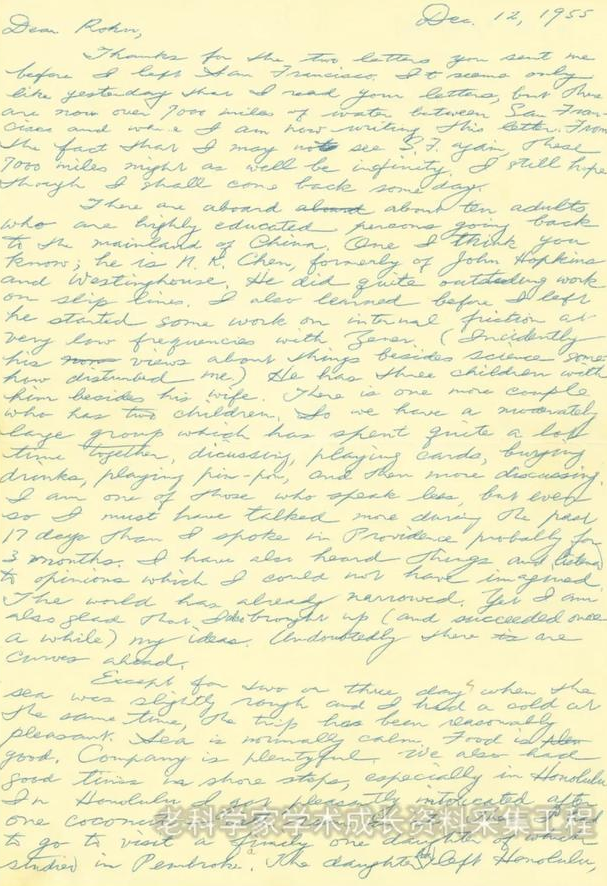 Dec. 12, 1955
Dear Rohn,
Thanks for the two letters you sent me
before I left San Francisco. It seems only
like yesterday that I read your letters, but there
are now over 7000 miles of water between San Fran-
cisco and where I am now writing this letter. From
the fact that I may not see S.F. again these
7000 miles might as well be infinity. I still hope
though I shall come back some day.
There are aboard about ten adults
who are highly educated persons going back
to the mainland of China. One I think you
know; he is N. K. Chen, formerly of John Hopkins
and Westinghouse. He did quite outstanding work
on slip lines. I also learned before I left
he started some work on internal friction at
very low frequencies with Zener. (Incidently
his views about things besides science some
how disturbed me.) He has three children with
him besides his wife. There is one more couple
who has two children. So we have a moderately
large group which has spent quite a lot
time together, dicussing, playing cards, buying
drinks, playing pin-pon, and then more discussing.
I am one of those who speak less, but even
so I must have talked more during the past
17 days than I spoke in Providence probably for
3 months. I have also heard things and listened
to opinions which I could not have imagined.
The world has already narrowed. Yet I am
also glad that I brought up (and succeeded once
a while) my ideas. Undoubtedly there are
curves ahead.
Except for two or three days when the
sea was slightly rough and I had a cold at
the same time, the trip has been reasonably
pleasant. Sea is normally calm. Food is
good. Company is plentyful. We also had
good times in shore stops, especially in Honolulu.
In Honolulu I got pleasantly intoxicated after
one coconut
to go to visit a family one daughter of which
studied in Pembroke. The daughter left Honolulu,
老科学家学术成长资料采集工程